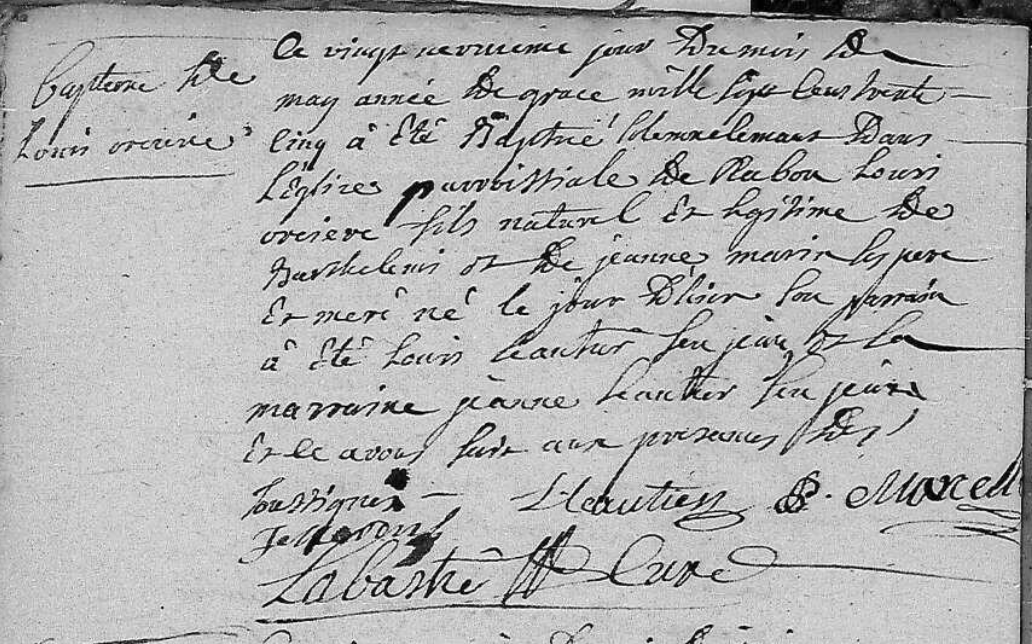 Bapteme de
Louis orciere
Ce vingt neuvieme jour Du mois de
may année de grace mille sept cens trente
cinq â êté Baptisé solemnelemant Dans
L'Église parroissiale de Rabou Louis
orciere fils naturel et legitime de
Barthelemi et de jeanne marin ses pere
et mere né le jour D'hier son parrain
â êté Louis Leautier feu jean et la
marraine jeanne Leautier feu jean
et ce avons fait aux presances des
soussignes
L Leautier P. Marcell
Labastie Curé